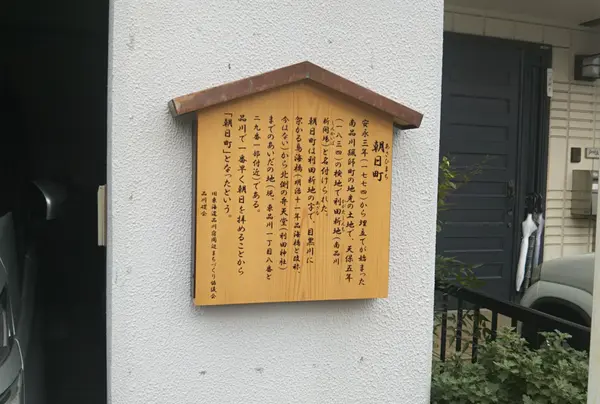 朝日町
あさひまち
安永三年(一七七四)から埋立てが始まった
南品川猟師町の地先の土地で、天保五年
(一八三四)の検地で利田新地(南品川
新開場)と名付けられた。
朝日町は利田新地の字で、目黒川に
架かる鳥海橋(明治十一年品海橋と改称、
今はない)から北側の弁天堂(利田神社)
までのあいだの地(現、東品川一丁目八番と
二九番一部付近)である。
品川で一番早く朝日を拝めることから
「朝日町」となったという。
旧東海道品川宿周辺まちづくり協議会
品川硯会